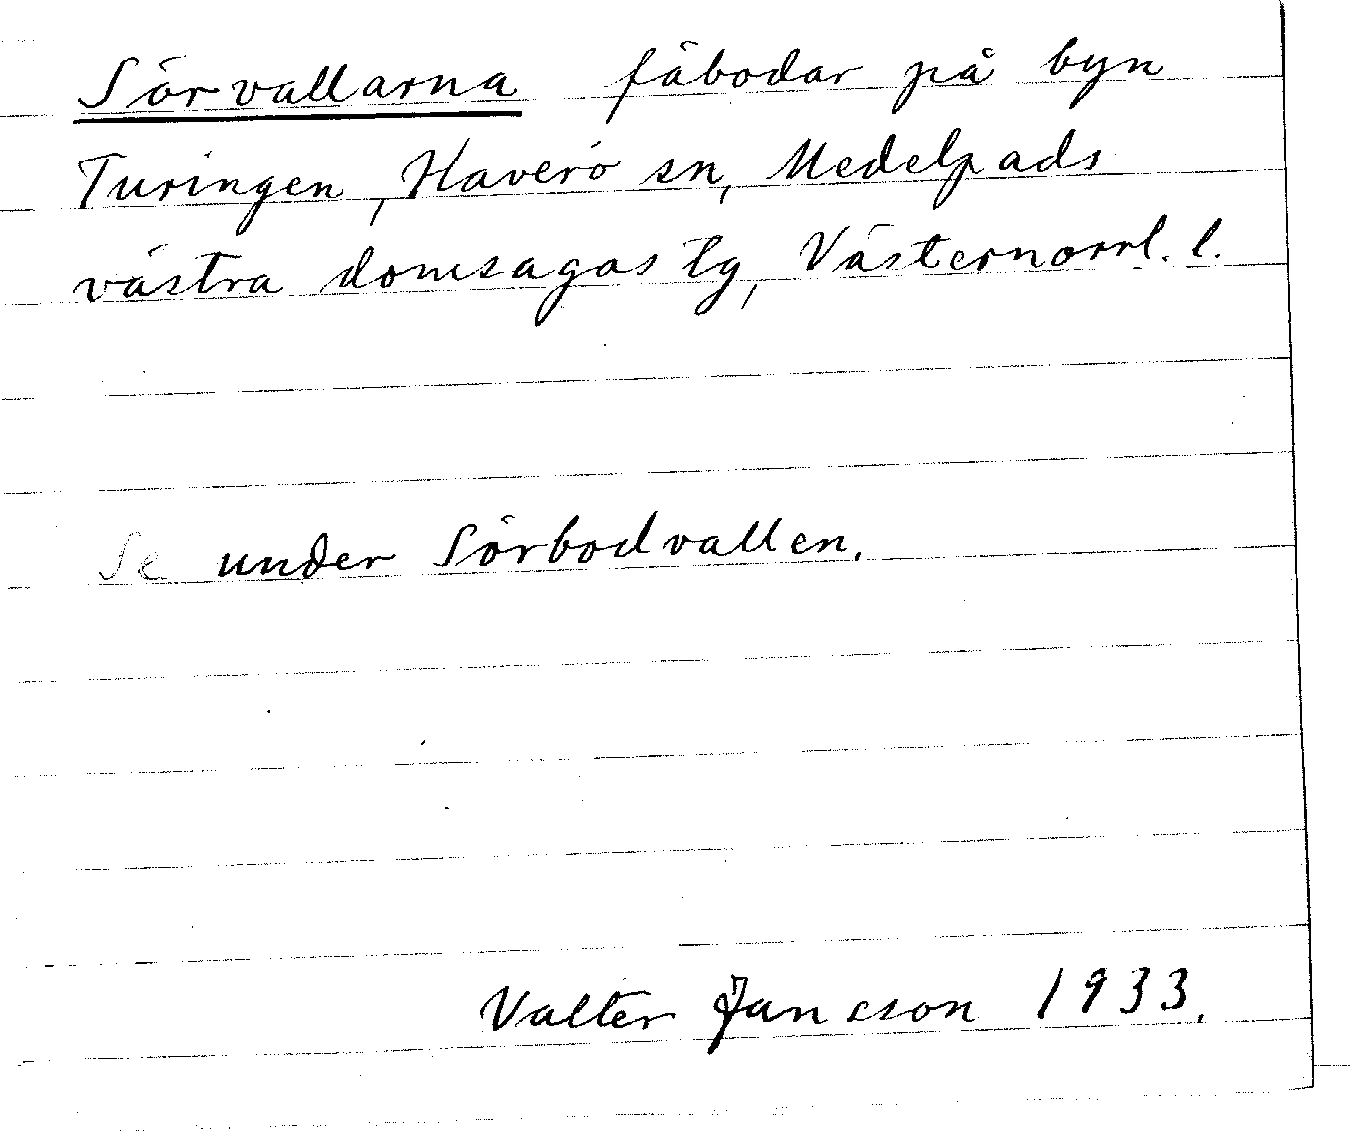 Sörvallarna fäbodar på byn
Turingen, Haverö sn, Medelpads
västra domsagas tg, Västernorrl. l.
Se under Sörbodvallen.
Valter Jansson 1933.